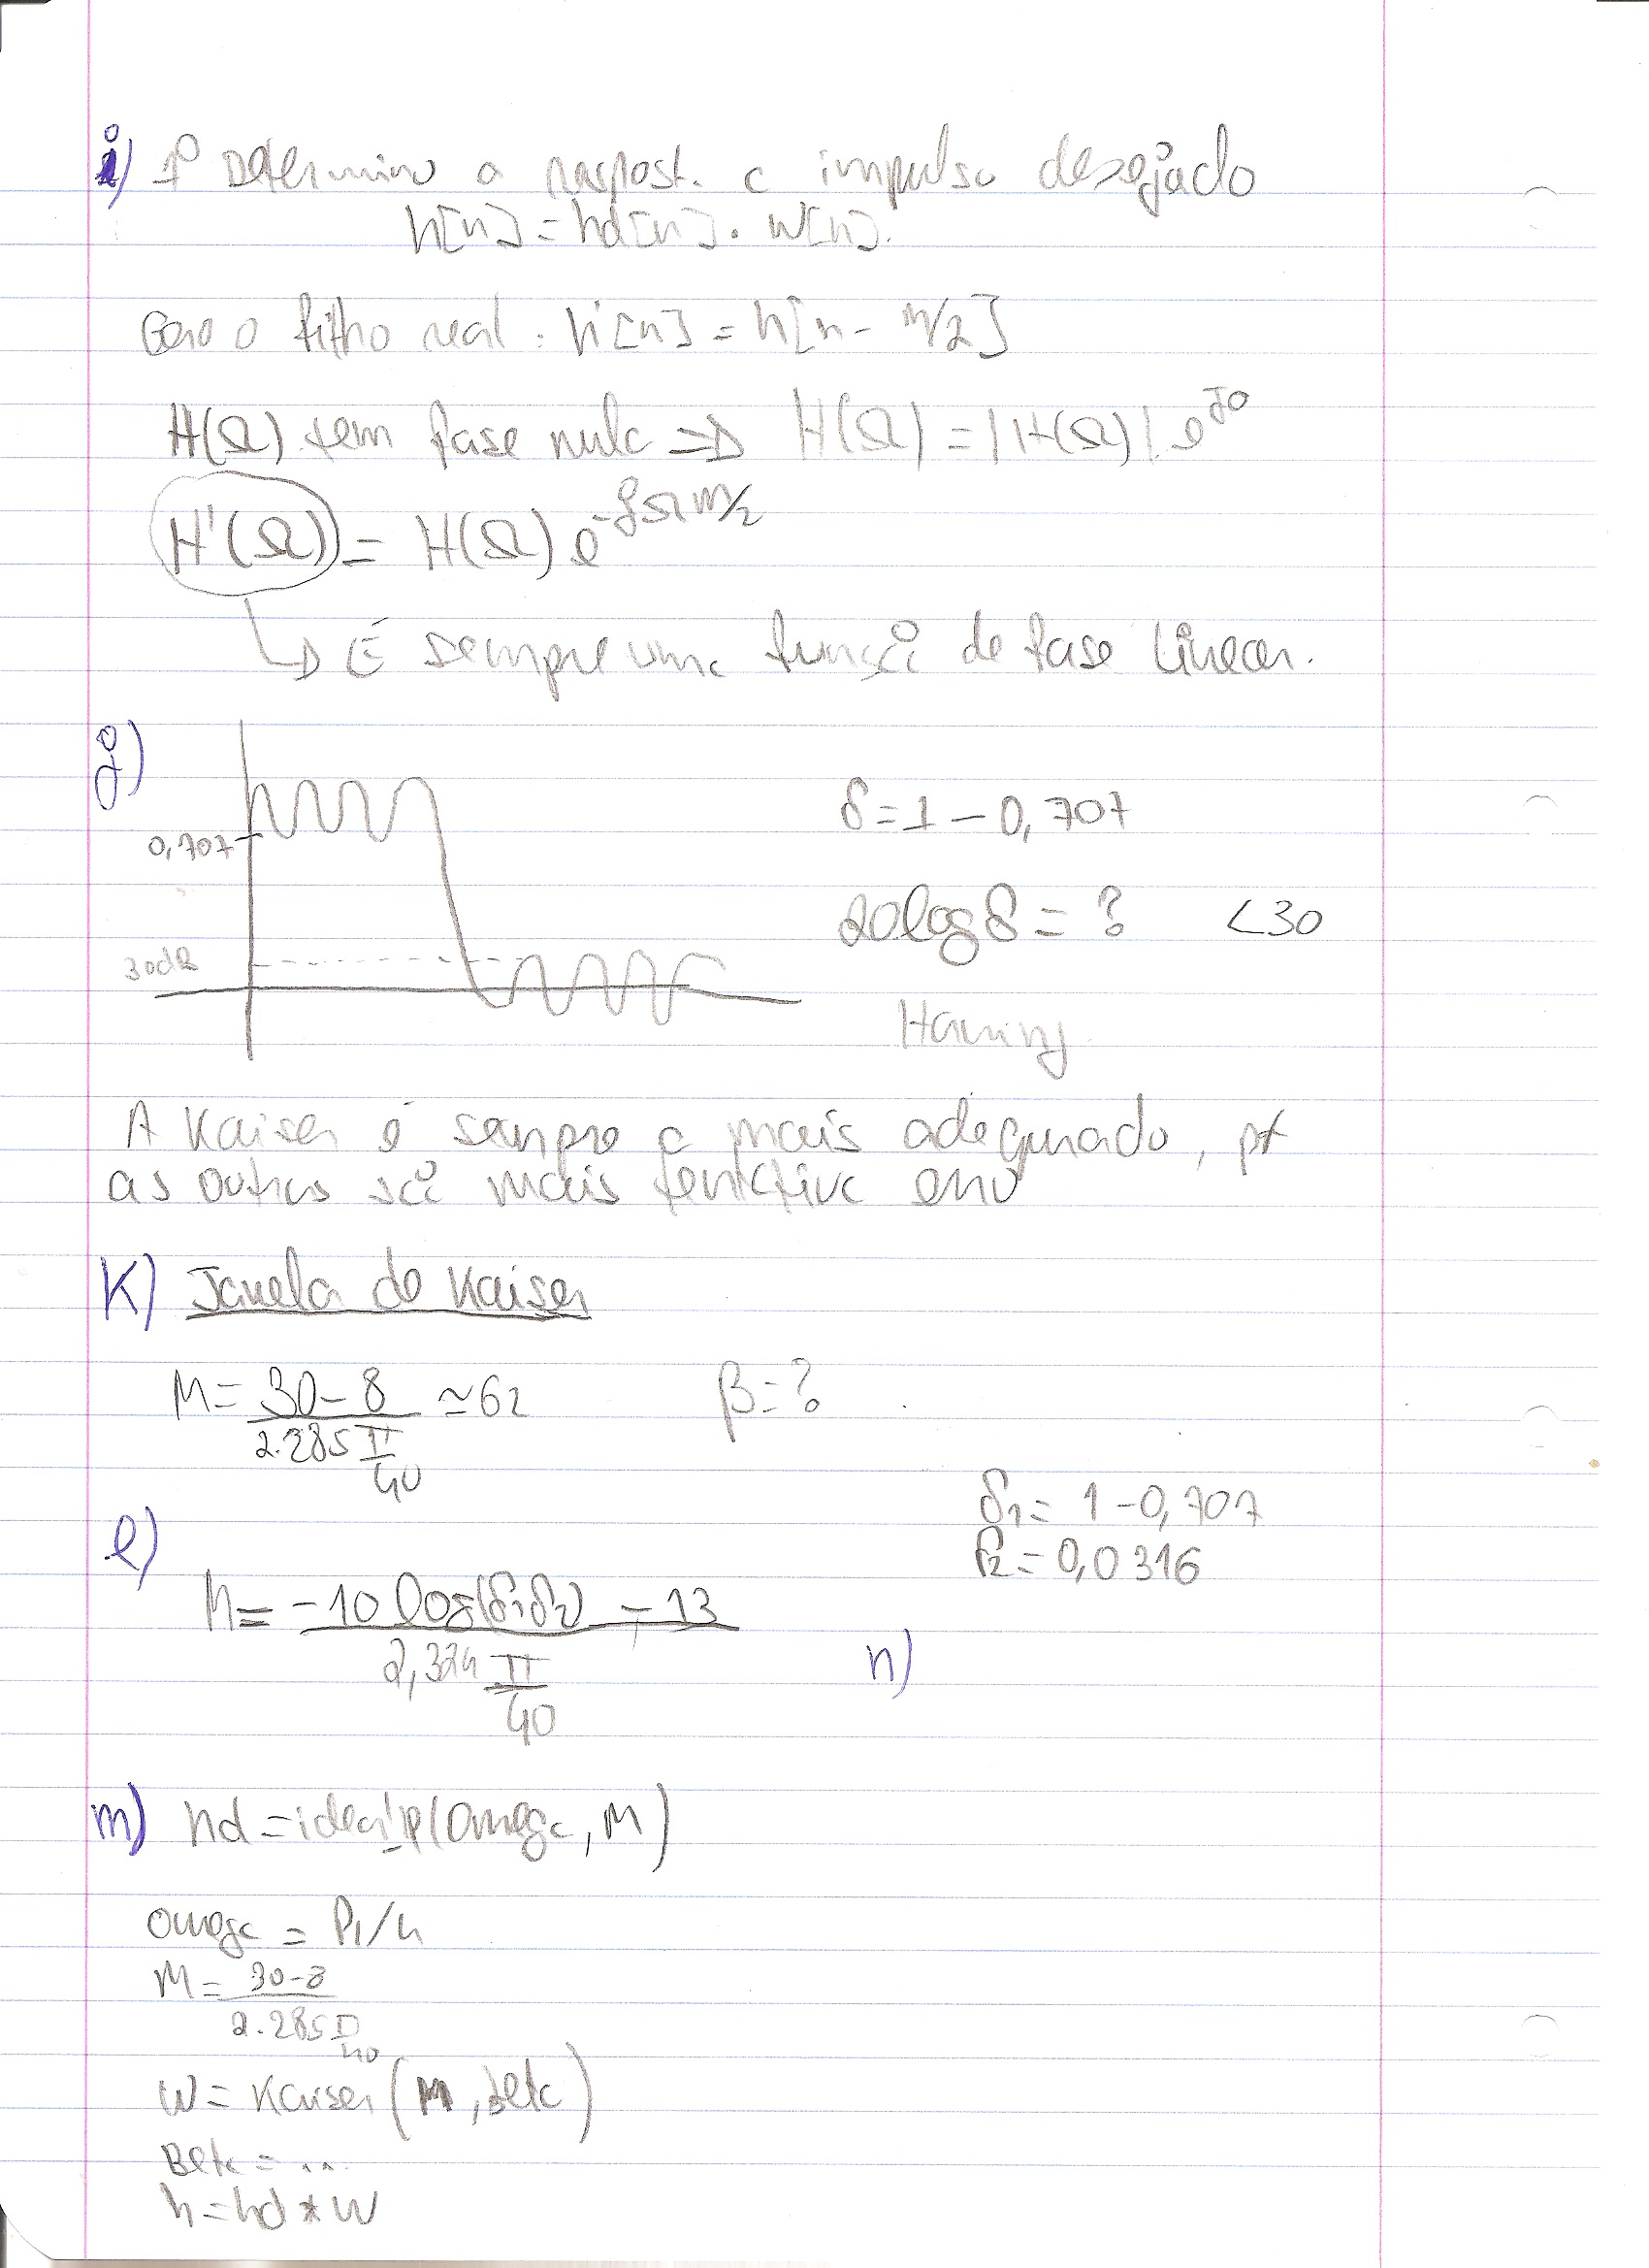 i) 1º Determino a respost. a impulso desejado
h[n] = hd[n] . w[n].
Gero o filtro real : h'[n] = h[n - M/2]
H(Ω) tem fase nula => H(Ω) = |H(Ω)| e^{j0}
H'(Ω) = H(Ω) e^{-jΩM/2}
É sempre uma função de fase linear.
j)
0,707
30dB
δ = 1 - 0,707
20 log δ = ? <30
Hanning
A Kaiser é sempre a mais adequado, pq
as outras são mais tentativa erro
K) Janela de Kaiser
M = (30 - 8) / (2.285 π/40) ≃ 62 β = ?
δ1 = 1 - 0,707
δ2 = 0,0316
l)
M = (-10 log(δ1δ2) - 13) / (2,324 π/40)
n)
m) hd = ideal_lp(Omega, M)
Omega = Pi/4
M = (30-8) / (2.285 π/40)
W = Kaiser (M, beta)
Beta = ...
h = hd * W